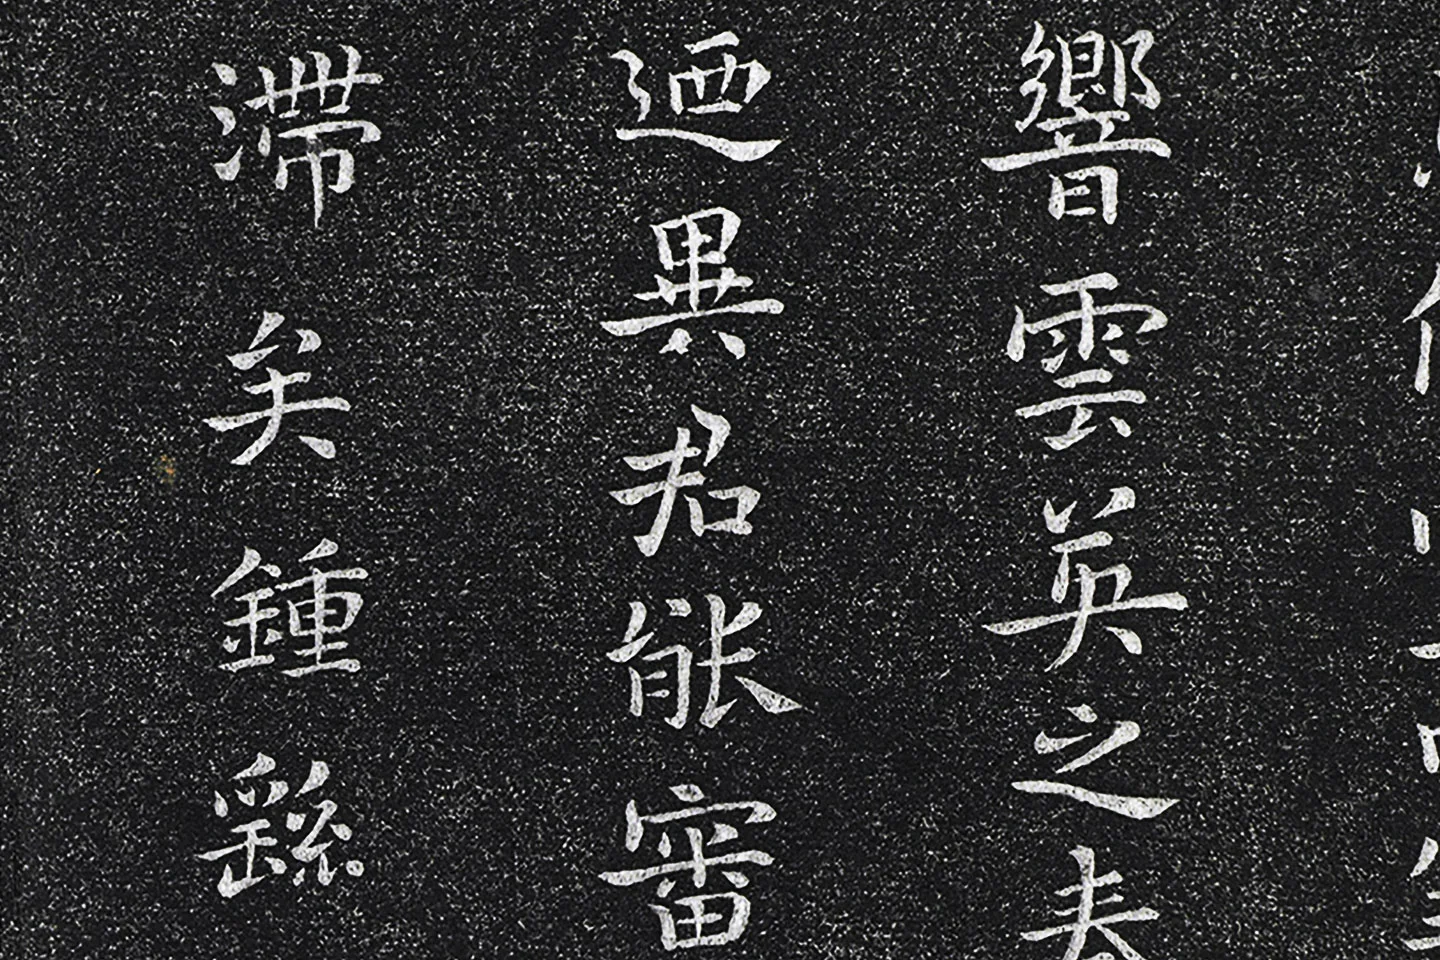 響雲英之春
迺異君能審
滯矣鍾繇